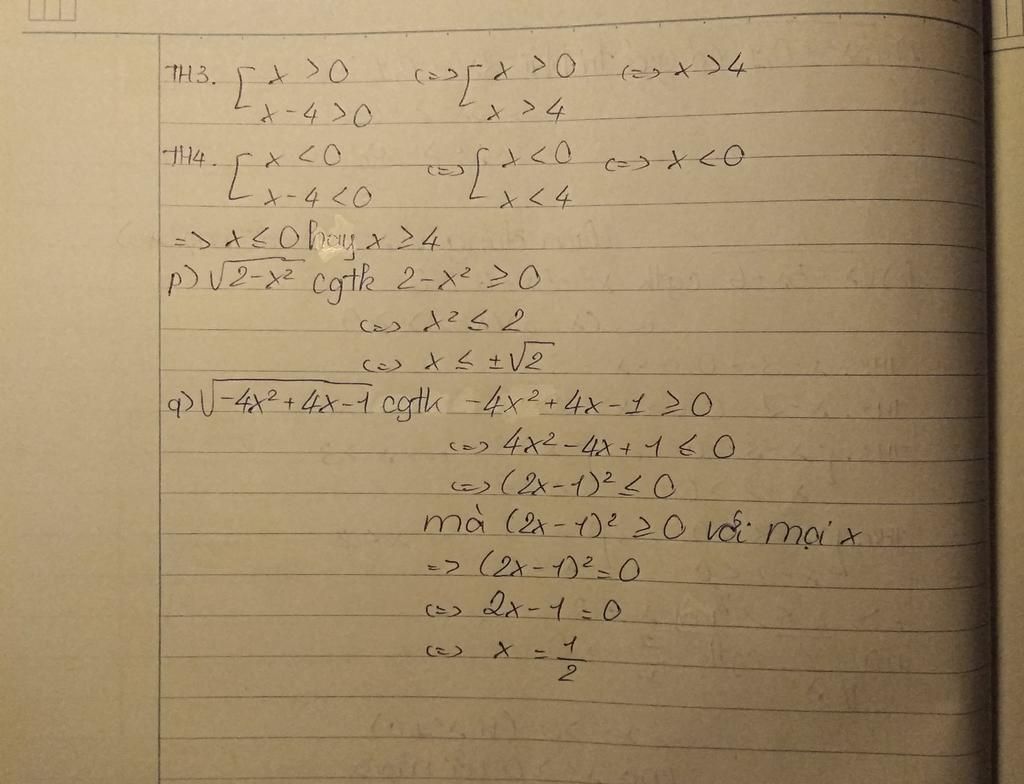 TH3. [ x > 0 <=> [ x > 0 <=> x > 4
x - 4 > 0 x > 4
TH4. [ x < 0 <=> [ x < 0 <=> x < 0
x - 4 < 0 x < 4
=> x ≤ 0 hay x ≥ 4
p) √(2-x²) cgtk 2-x² ≥ 0
<=> x² ≤ 2
<=> x ≤ ±√2
q) √(-4x²+4x-1) cgtk -4x²+4x-1 ≥ 0
<=> 4x²-4x+1 ≤ 0
<=> (2x-1)² ≤ 0
mà (2x-1)² ≥ 0 với mọi x
=> (2x-1)² = 0
<=> 2x-1 = 0
<=> x = 1/2